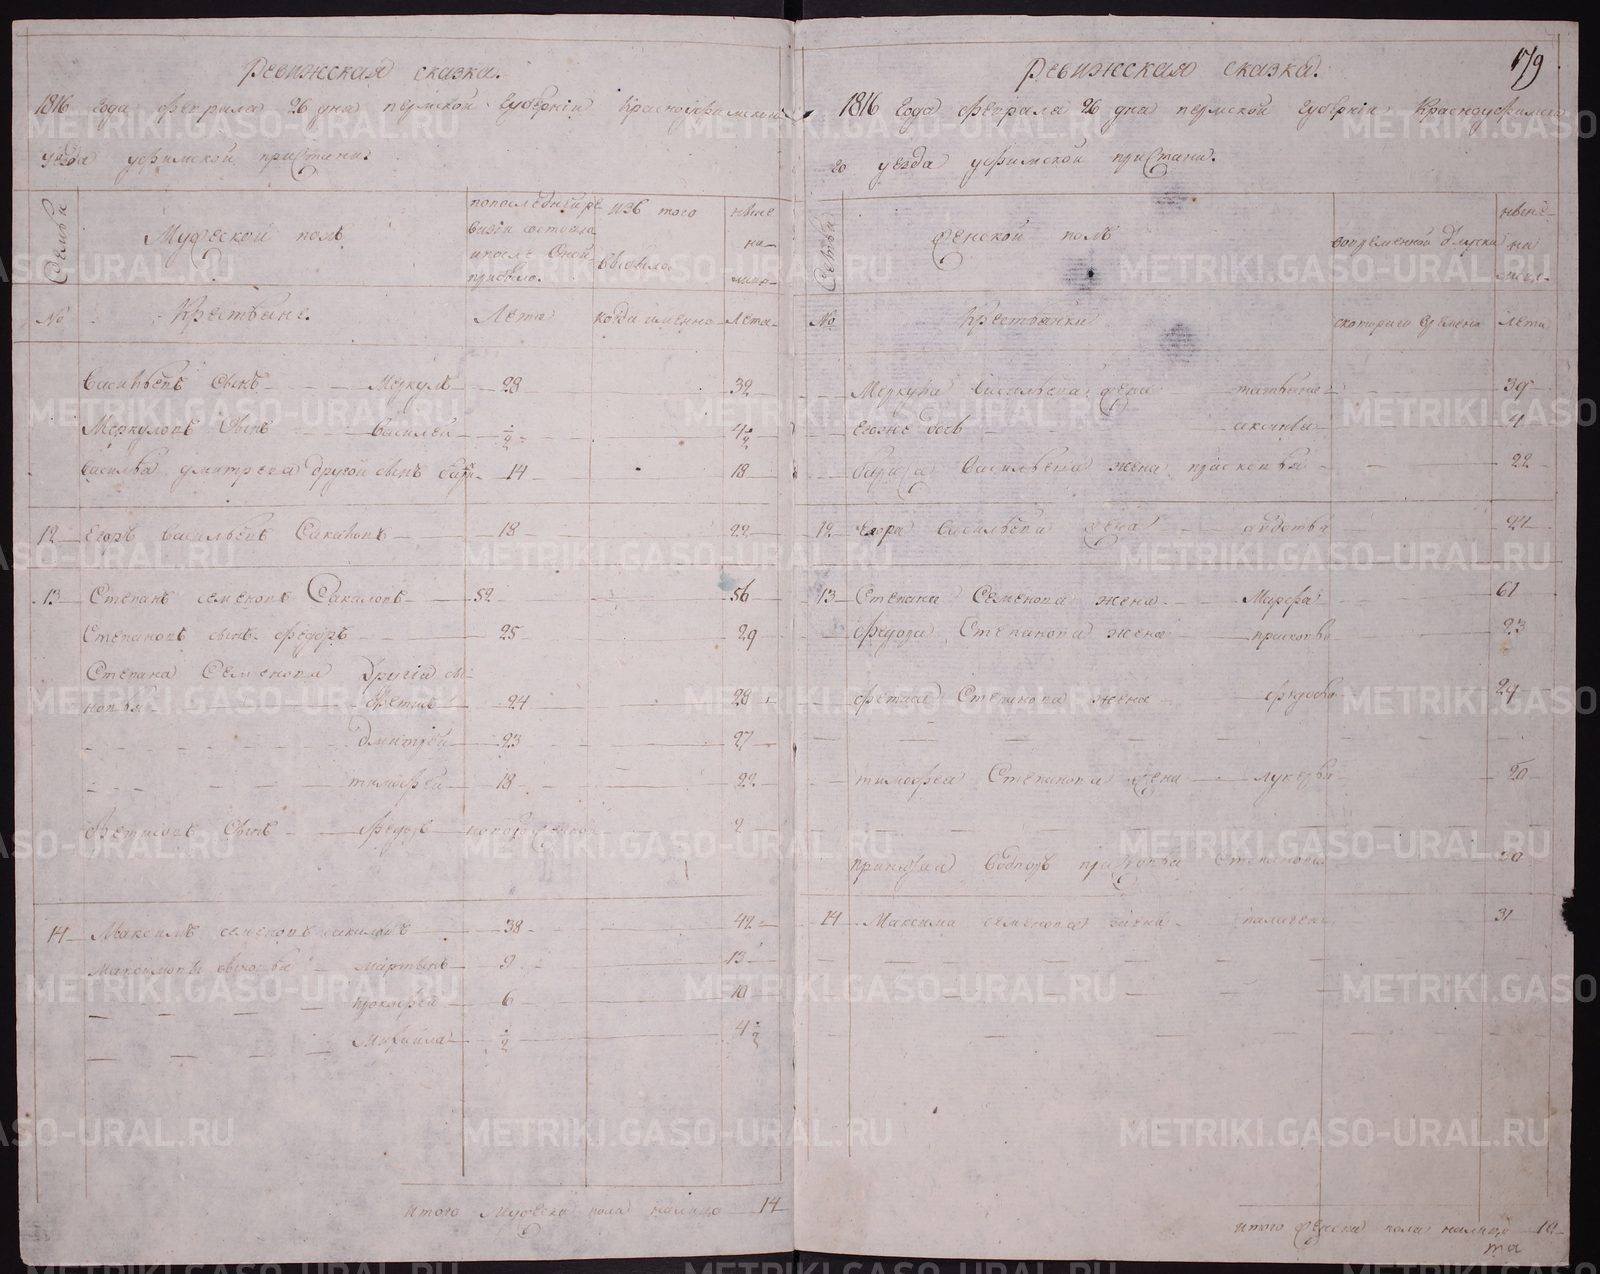 Ревижская сказка.
1816 года февраля 26 дня пермской губерніи Красноуфимскаго
уезда уфимской пристани.
Семьи
Мужеской полъ
по последней ре
визіи состояло
и после оной
прибыло.
изъ того
выбыло.
ныне
на
лицо
№
Крестьяне.
Лета
когда именно
Лета
Васильевъ сынъ Меркулъ 28 32
Меркуловъ сынъ Василей 1/2 4 1/2
Василья Дмитрева другой сынъ 14 18
12 Егоръ Васильевъ Сакаловъ 18 22
13 Степанъ семеновъ Сакаловъ 52 56
Степановъ сынъ федоръ 25 29
Степана Семенова другія сы-
новья 24 28
дмитрей 23 27
тимофей 18 22
сынъ федоръ 2
14 Максимъ семеновъ сакаловъ 38 42
Максимовы сыновья мартынъ 9 13
прокофей 6 10
Михайла 1/2 4 1/2
итого мужеска пола налицо 14
179
Ревижская сказка.
1816 года февраля 26 дня пермской губерніи Красноуфимска
го уезда уфимской пристани.
Семьи
Женской полъ
во временной отлучки
ныне
на
лицо
№
Крестьянки
скотораго времени
Лета
Меркула Васильева жена татьяна 39
Егоже дочь 4
Васильева жена прасковья 22
12 Егора Васильева жена 24
13 Степана Семенова жена Марфа 61
федора Степанова жена прасковья 23
Степанова жена федосья 29
тимофея Степанова жена лукерья 20
Степанова 20
14 Максима семенова жена палагея 31
итого женска пола налицо 10
та
METRIKI.GASO-URAL.RU